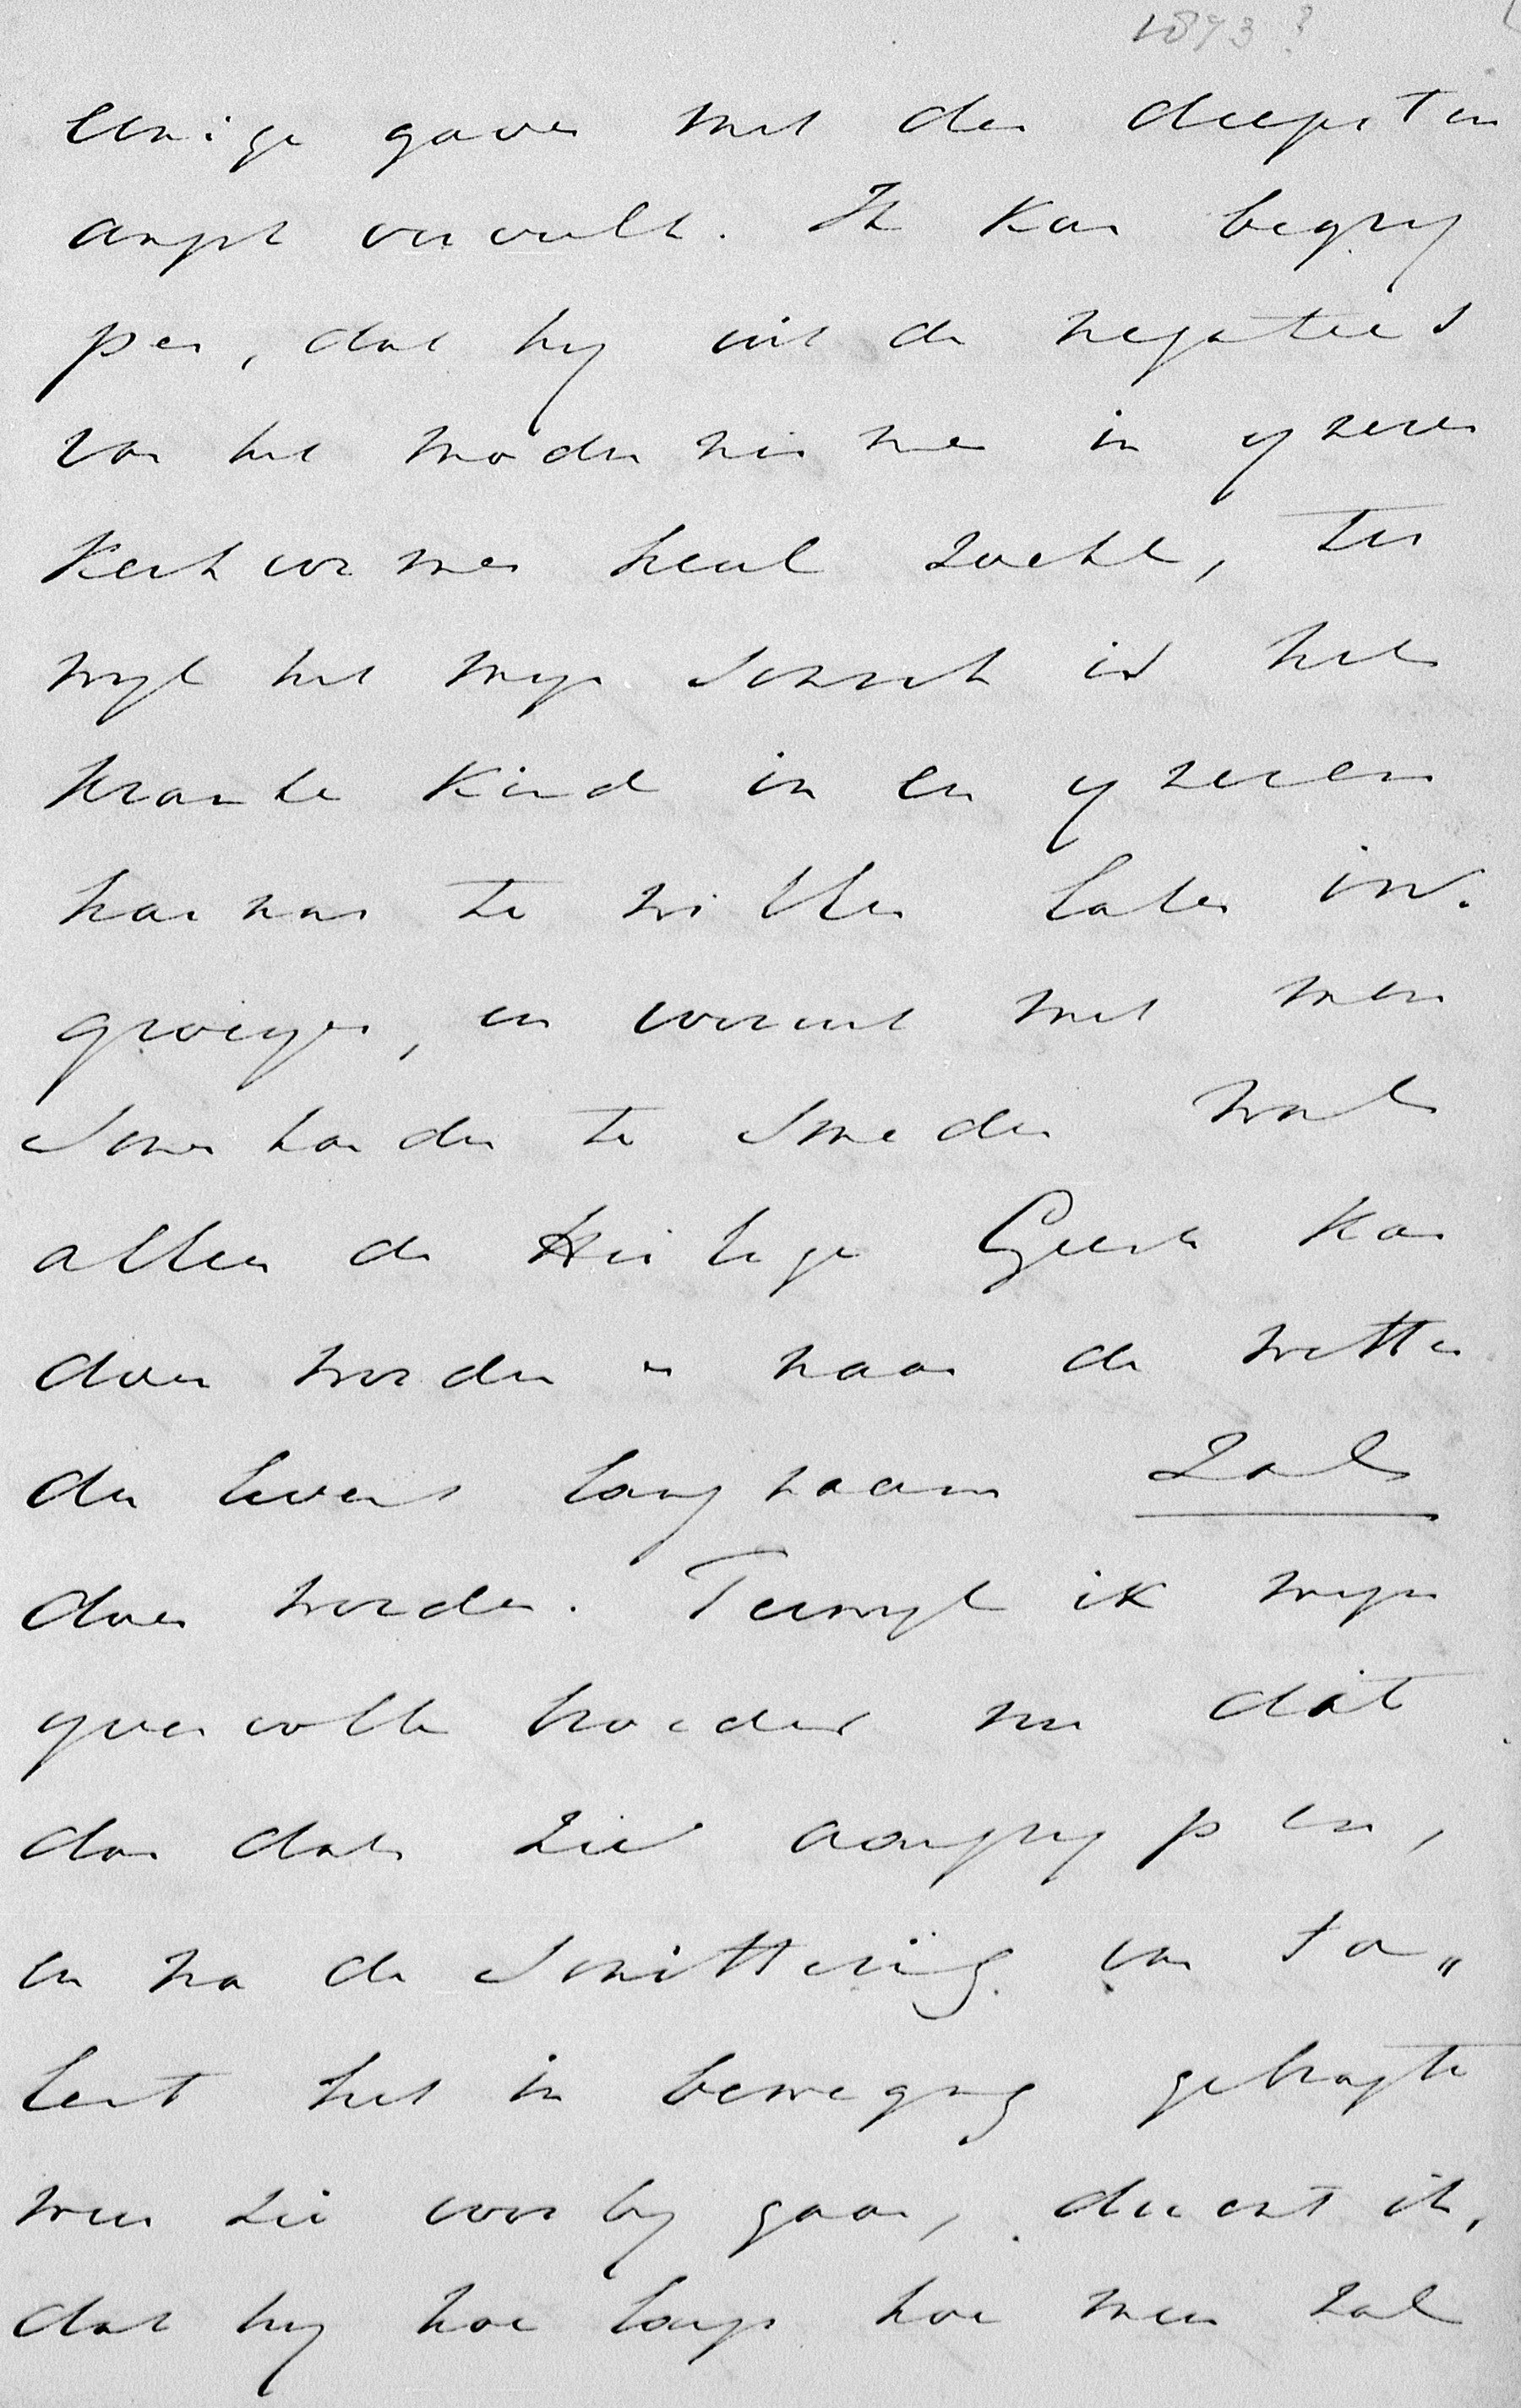 1873?
eenige gaven met den diepsten
angst vervult. Ik kan begrij
pen, dat hij uit de negaties
van het modernisme in ijzeren
kerkvormen heul zocht, ter
wijl het mijn is het
kranke kind in en ijzeren
harnas te willen laten in.
groeijen, en vooruit met men
schenhanden te smeden wat
alleen de Heilige Geest kan
doen worden en naar de wetten
des levens langzaam zal
doen worden. Terwijl ik mijn
ijvervolle broeder nu dit
dan dat zie aangrijpen,
en na de schittering van ta„
lent het in beweging gebragte
weer zie voorbij gaan, ducht ik,
dat hij hoe langer hoe meer zal